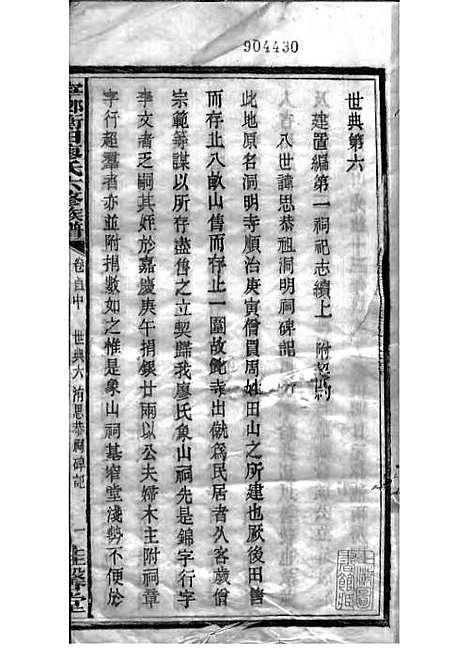 904430
世典第六
建置編第一祠祀志續上 附契約
八世諱思恭祖洞明祠碑記
此地原名洞明寺順治庚寅僧員周姓田山之所建也厥後田皆
而存止八畝山售而存止一圍故鈍寺出僦為民居者久客歲僧
宗範等謀以所存盡售之立契歸我廖氏象山祠先是錦字行字
孛文者乏嗣其姪於嘉慶庚午捐銀廿兩以公夫婦木主附祠章
字行超羣者亦並附捐數如之惟是象山祠基窄堂淺勢不便於
寧鄉衡田廖氏六修族譜
卷首中 世典六 洧思恭祠碑記 一